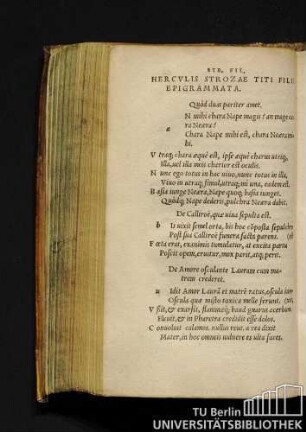 STR. FIL.
HERCVLIS STROZAE TITI FILII
EPIGRAMMATA.
Quòd duas pariter amet.
N mihi chara Nape magis? an magis
ra Neæra?
a
Chara Nape mihi est, chara Neæra
bi.
Vtraq; chara æquè est, ipse æquè charus utriq;
Illa, uel illa meis charior est oculis.
Nunc ego totus in hac uiuo, nunc totus in illa,
Viuo in utraq; simul, utraq; mi una, eadem est.
Basia iunge Neæra, Nape quoq; basia iunget.
Quódq; Nape dederit, pulchra Neæra dabit.
De Calliroë, quæ uiua sepulta est.
b Is uixit semel orta, bis hoc composta sepulchro
Post sua Calliroë funera facta parens.
Fœta erat, exanimis tumulatur, at excita partu
Poscit opem, eruitur, mox parit, atq; perit.
De Amore osculante Lauram cum matrem crederet.
Vidit Amor Lauram et matrem ratus, oscula
Oscula quæ misto toxica melle ferunt.
Vssit, & exarsit, flammæq; haud gnarus
Fleuit, & in Pharetra credidit esse dolos.
Conuoluit calamos, nullus erat, a rea dixit
Mater, in hoc omnis uulnere es uisa
TU Berlin
UNIVERSITÄTSBIBLIOTHEK